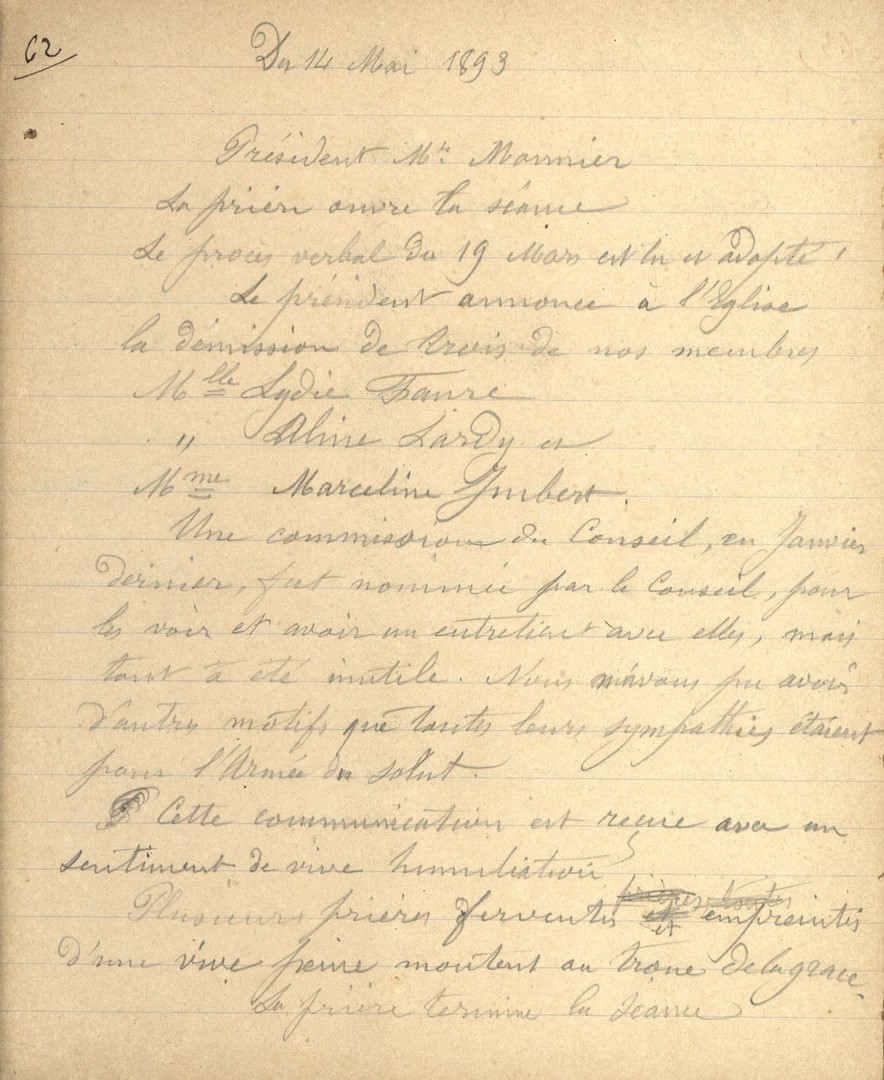 62
Du 14 Mai 1893
Président Mr. Monnier
La prière ouvre la séance
Le procès verbal du 19 Mars est lu et adopté
Le président annonce à l'Eglise
la démission de trois de nos membres
Mlle Lydie Favre
" Aline Lardy et
Mme Marceline Imbert.
Une commission du Conseil, en Janvier
dernier, fut nommée par le Conseil, pour
les voir et avoir un entretient avec elles, mais
tout à été inutile. Nous n'avons pu avoir
d'autres motifs que toutes leurs sympathies étaient
pour l'Armée du Salut.
Cette communication est reçue avec un
sentiment de vive humiliation
Plusieurs prières ferventes et empreintes
d'une vive peine montent au trône de la grace
La prière termine la séance